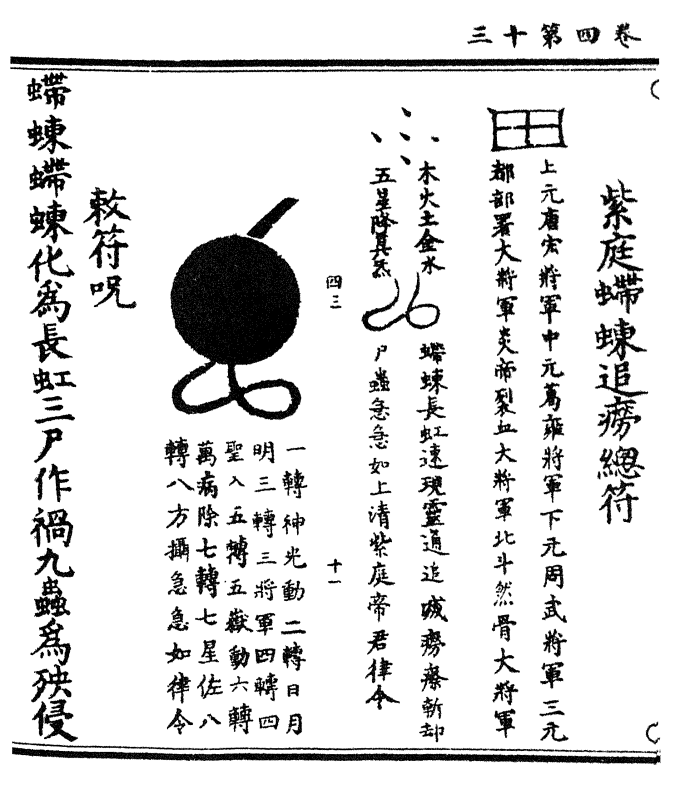 卷四第十三
紫庭䗖蝀追癆總符
上元唐宏將軍中元葛雍將軍下元周武將軍三元
都部署大將軍炎帝裂血大將軍北斗然骨大將軍
木火土金水
五星降真炁
䗖蝀長虹速現靈通追滅癆瘵斬却
尸蟲急急如上清紫庭帝君律令
四三
十一
一轉神光動二轉日月
明三轉三將軍四轉四
聖入五轉五嶽動六轉
萬病除七轉七星佐八
轉八方攝急急如律令
敕符呪
䗖蝀䗖蝀化爲長虹三尸作禍九蟲爲殃侵